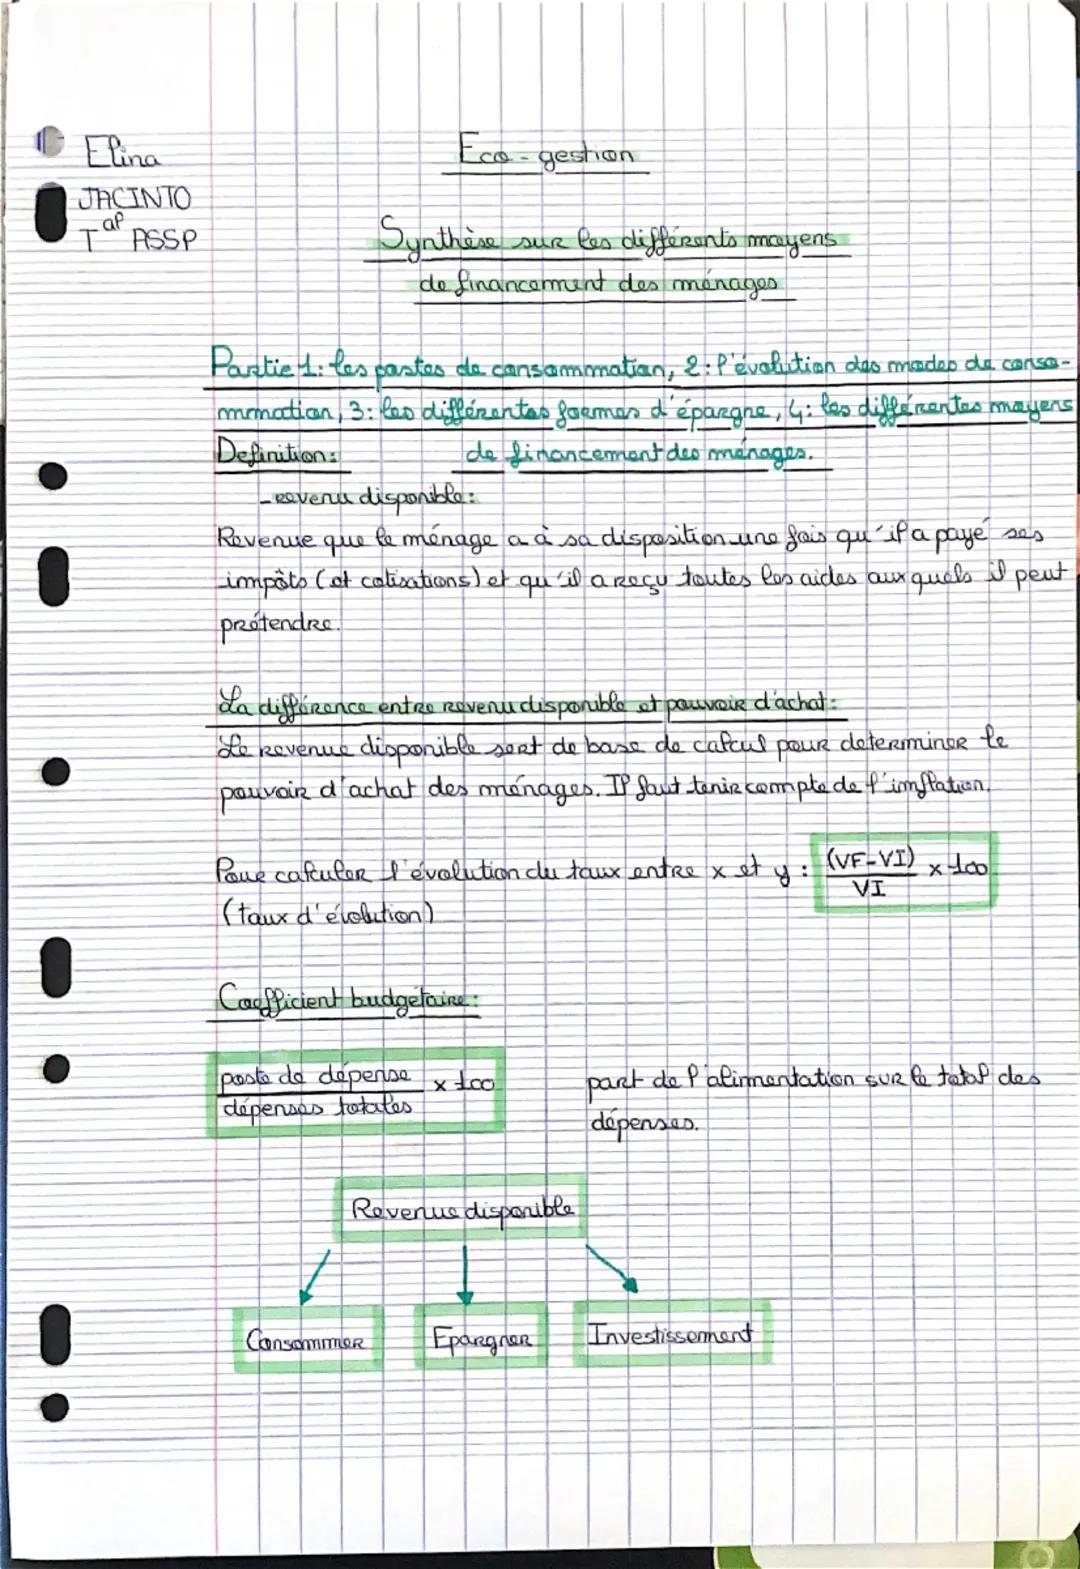 Elina
JACINTO
Tap ASSP
Eco-gestion
Synthèse sur les différents moyens
de financement des ménages
Partie 1: les postes de consommation, 2: l'évolution des modes de conso-
mmation, 3: les différentes formes d'épargne, 4: les différentes moyens
de financement des ménages.
Definition:
- revenu disponible:
Revenue que le ménage a à sa disposition une fois qu'il a payé ses
impôts (et cotisations) et qu'il a reçu toutes les aides aux quels il peut
prétendre.
La différence entre revenu disponible et pouvoir d'achat:
Le revenue disponible sert de base de calcul pour determiner le
pouvoir d'achat des ménages. Il faut tenir compte de l'imflation.
Pour calculer l'évolution du taux entre x et y : (VF-VI) x 100
VI
(taux d'évolution)
Coefficient budgetaire:
poste de dépense x 100
dépenses totales
part de l'alimentation sur le total des
dépenses.
Revenue disponible
Consommer Epargner Investissement